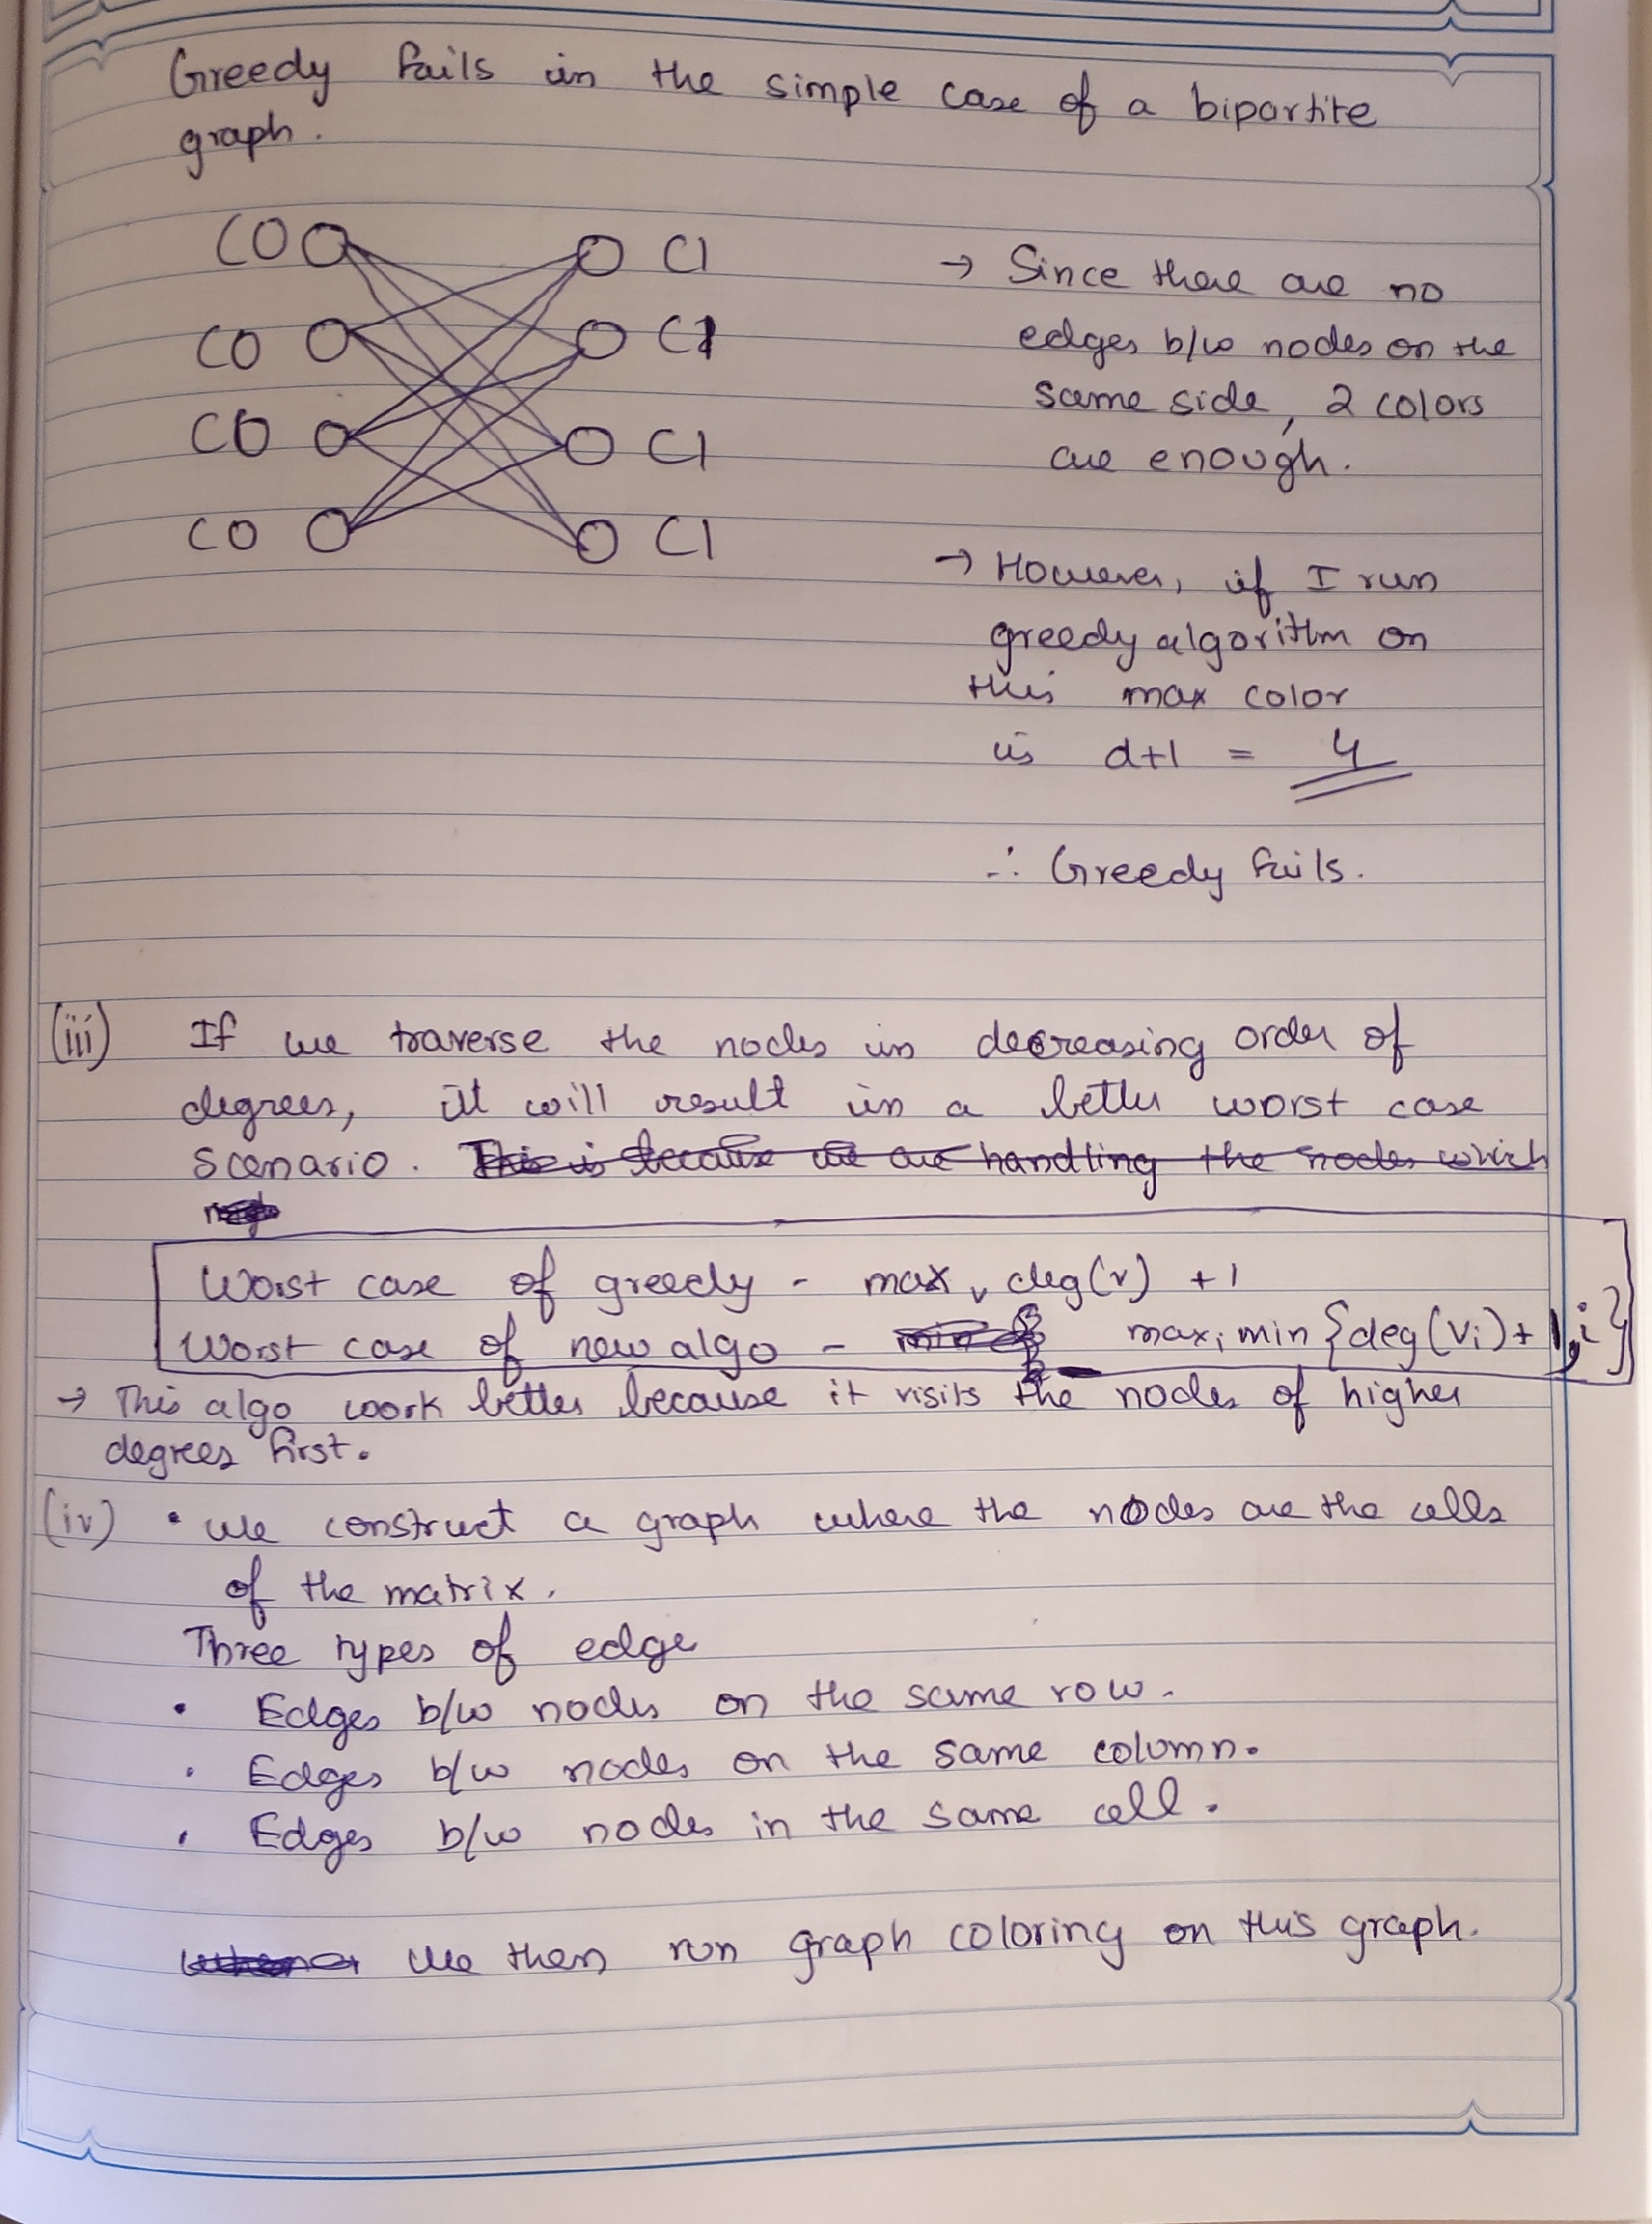 Greedy fails in the simple case of a bipartite
graph.
C0 C1
C0 C1
C0 C1
C0 C1
→ Since there are no
edges b/w nodes on the
same side, 2 colors
are enough.
→ However, if I run
greedy algorithm on
this max color
is d+1 = 4
∴ Greedy fails.
(iii) If we traverse the nodes in decreasing order of
degrees, it will result in a better worst case
scenario. This is because we are handling the nodes which
Worst case of greedy - max v deg(v) + 1
Worst case of new algo - max i min {deg(Vi) + 1, i}
→ This algo work better because it visits the nodes of higher
degrees first.
(iv) • We construct a graph where the nodes are the cells
of the matrix.
Three types of edge
• Edges b/w nodes on the same row.
• Edges b/w nodes on the same column.
• Edges b/w nodes in the same cell.
We then run graph coloring on this graph.